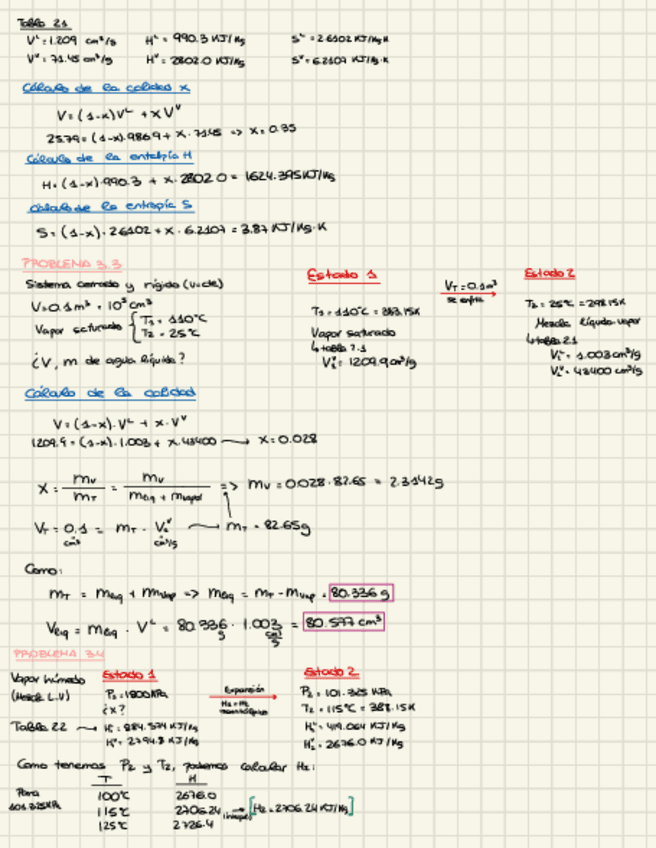 Tabla 2.1
V^L = 1.209 cm³/g   H^L = 990.3 KJ/Kg   S^L = 2.6102 KJ/Kg·K
V^V = 71.45 cm³/g   H^V = 2802.0 KJ/Kg   S^V = 6.2107 KJ/Kg·K
Cálculo de la calidad x
V = (1-x)V^L + x V^V
25.79 = (1-x)·0.9869 + x·71.45 => x = 0.35
Cálculo de la entalpía H
H = (1-x)·990.3 + x·2802.0 = 1624.395 KJ/Kg
Cálculo de la entropía S
S = (1-x)·2.6102 + x·6.2107 = 3.87 KJ/Kg·K
PROBLEMA 3.3
Sistema cerrado y rígido (v=cte)
V = 0.1 m³ = 10⁵ cm³
Vapor saturado { T₁ = 110°C
T₂ = 25°C
¿V, m de agua líquida?
Estado 1
T₁ = 110°C = 383.15K
Vapor saturado
↳ tabla 2.1
V₁^V = 1209.9 cm³/g
V_T = 0.1 m³
se enfría
Estado 2
T₂ = 25°C = 298.15K
Mezcla líquido-vapor
↳ tabla 2.1
V₂^L = 1.003 cm³/g
V₂^V = 43400 cm³/g
Cálculo de la calidad
V = (1-x)·V^L + x·V^V
1209.9 = (1-x)·1.003 + x·43400 → x = 0.028
x = m_v / m_T = m_v / (m_liq + m_vapor) => m_v = 0.028·82.65 = 2.3142g
V_T = 0.1 = m_T · V₁^V → m_T = 82.65g
cm³ cm³/g
Como:
m_T = m_liq + m_vap => m_liq = m_T - m_vap = 80.336 g
V_liq = m_liq · V^L = 80.336 · 1.003 = 80.577 cm³
g cm³/g
PROBLEMA 3.4
Vapor húmedo
(Mezcla L.V)
Tabla 2.2 →
Estado 1
P₁ = 1800 KPa
¿x?
H₁^L = 884.574 KJ/Kg
H₁^V = 2794.8 KJ/Kg
Expansión
H₁ = H₂
Estado 2
P₂ = 101.325 KPa
T₂ = 115°C = 388.15K
H₂^L = 419.064 KJ/Kg
H₂^V = 2676.0 KJ/Kg
Como tenemos P₂ y T₂, podemos calcular H₂:
T   H
Para 101.325KPa
100°C   2676.0
115°C   2706.24 → [H₂ = 2706.24 KJ/Kg]
125°C   2726.4